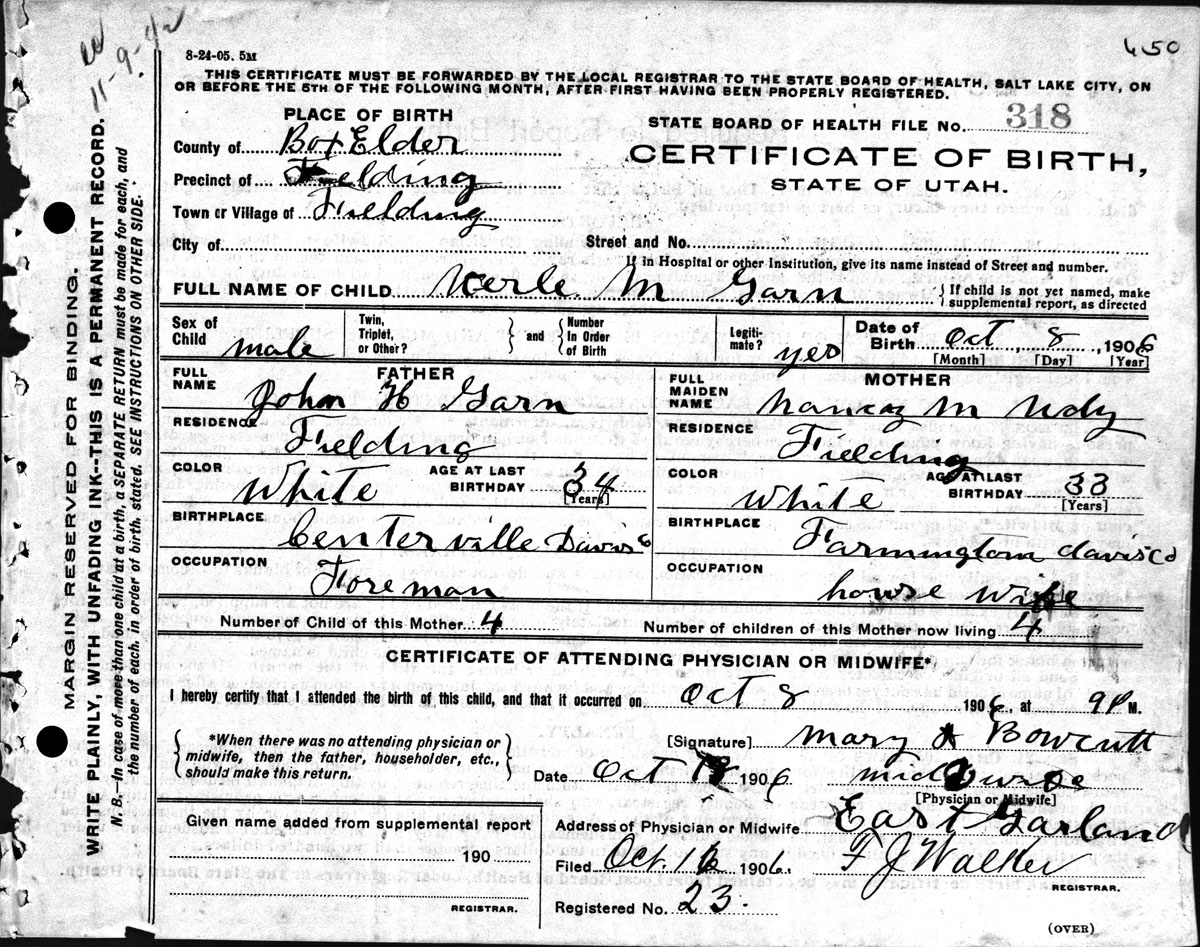 11-9-42
450
8-24-05. 5M
THIS CERTIFICATE MUST BE FORWARDED BY THE LOCAL REGISTRAR TO THE STATE BOARD OF HEALTH, SALT LAKE CITY, ON
OR BEFORE THE 5TH OF THE FOLLOWING MONTH, AFTER FIRST HAVING BEEN PROPERLY REGISTERED.
PLACE OF BIRTH
STATE BOARD OF HEALTH FILE No. 318
County of Box Elder
CERTIFICATE OF BIRTH,
Precinct of Fielding
STATE OF UTAH.
Town or Village of Fielding
City of
Street and No.
If in Hospital or other Institution, give its name instead of Street and number.
FULL NAME OF CHILD Verle M Garn
{ If child is not yet named, make
supplemental report, as directed
Sex of Child male
Twin, Triplet, or Other? } and { Number In Order of Birth
Legiti-mate? yes
Date of Birth Oct, 8, 1906
[Month] [Day] [Year]
FATHER
FULL NAME John H Garn
RESIDENCE Fielding
COLOR White
AGE AT LAST BIRTHDAY 34
[Years]
BIRTHPLACE Centerville Davis C
OCCUPATION Foreman
MOTHER
FULL MAIDEN NAME Nancy M Udy
RESIDENCE Fielding
COLOR White
AGE AT LAST BIRTHDAY 33
[Years]
BIRTHPLACE Farmington davis Co
OCCUPATION house wife
Number of Child of this Mother 4
Number of children of this Mother now living 4
CERTIFICATE OF ATTENDING PHYSICIAN OR MIDWIFE*
I hereby certify that I attended the birth of this child, and that it occurred on Oct 8 1906, at 9 P M.
{ *When there was no attending physician or
midwife, then the father, householder, etc.,
should make this return. }
[Signature] Mary A Bowcutt
Date Oct 1906 midwife
[Physician or Midwife]
Given name added from supplemental report
190
REGISTRAR.
Address of Physician or Midwife East Garland
Filed Oct. 16 1906. F J Walker
REGISTRAR.
Registered No. 23.
(OVER)
MARGIN RESERVED FOR BINDING.
WRITE PLAINLY, WITH UNFADING INK--THIS IS A PERMANENT RECORD.
N. B.—In case of more than one child at a birth, a SEPARATE RETURN must be made for each, and
the number of each, in order of birth, stated. SEE INSTRUCTIONS ON OTHER SIDE.